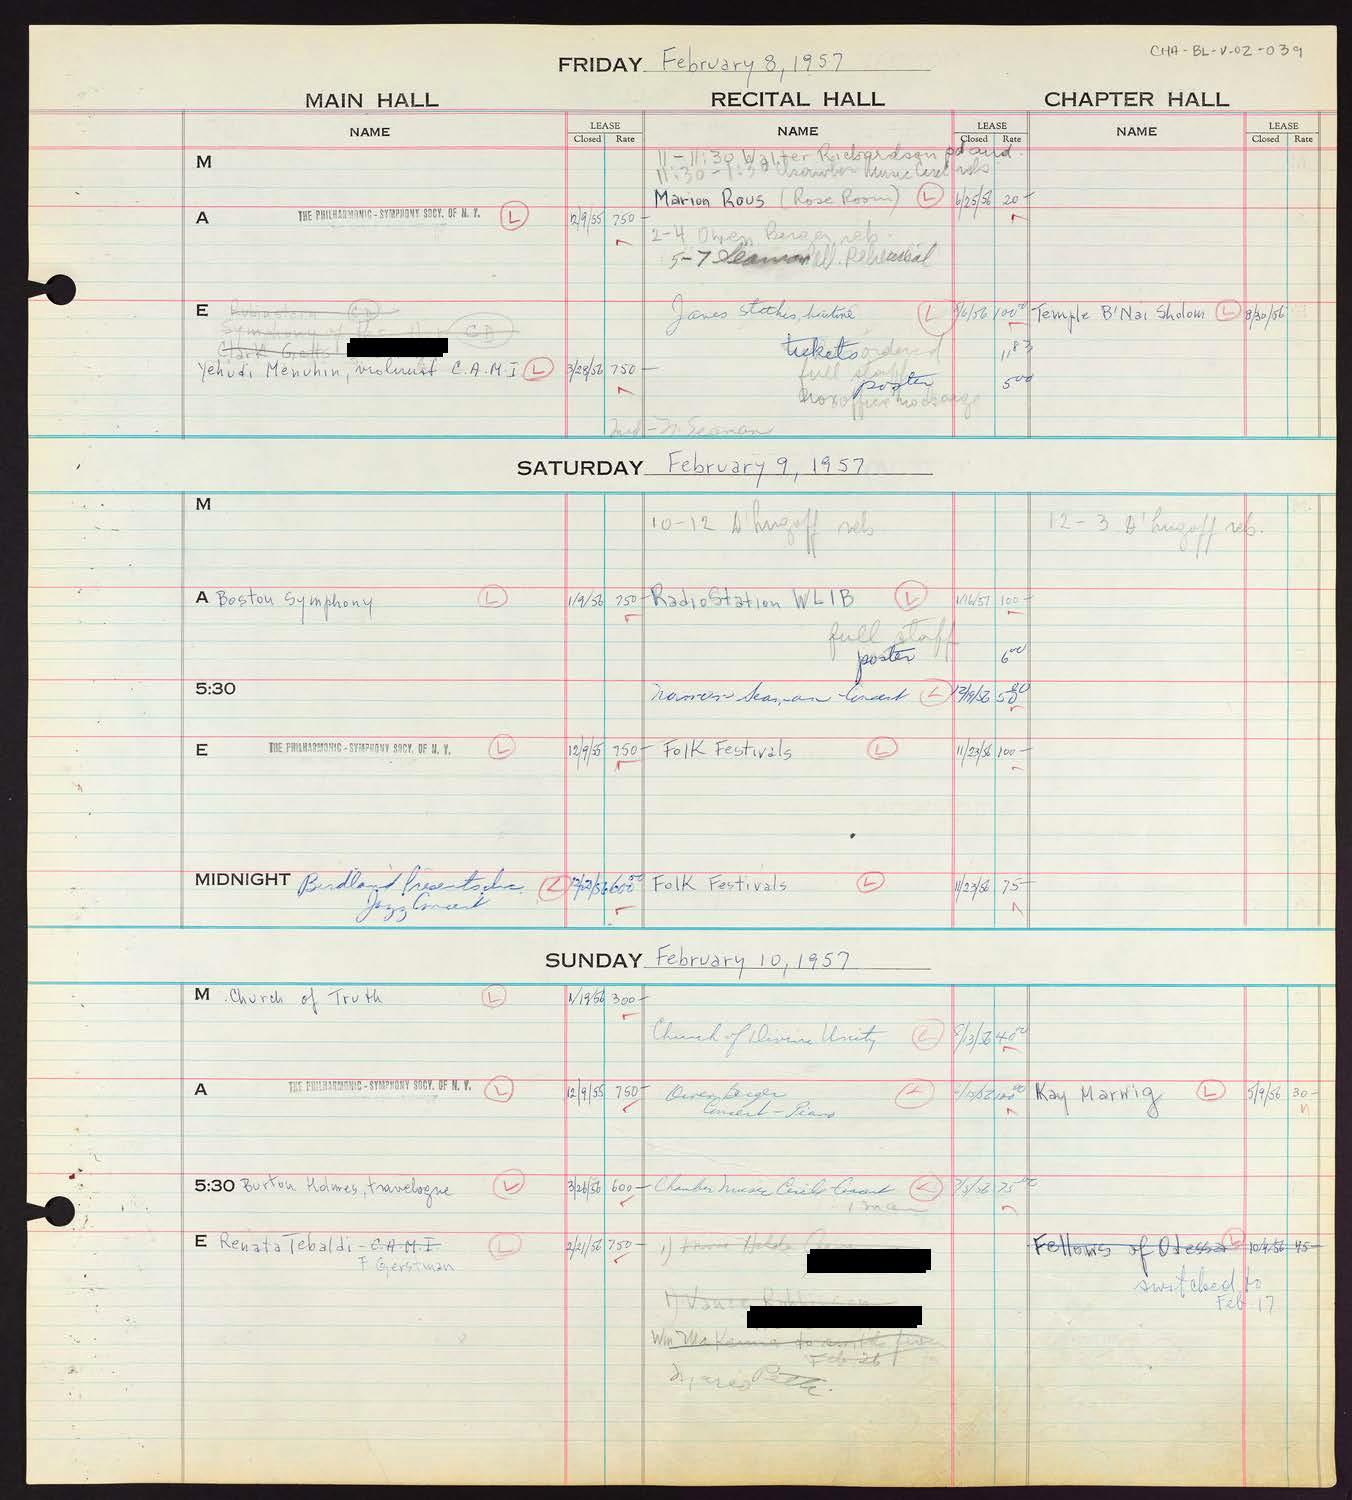 CHA-BL-V-02-039
FRIDAY February 8, 1957
MAIN HALL RECITAL HALL CHAPTER HALL
NAME LEASE Closed Rate NAME LEASE Closed Rate NAME LEASE Closed Rate
M
11-11:30 Walter Richardson pd aud.
11:30-1:30 Music Circle reh
Marion Rous (Rose Room) L 6/25/56 20-
A THE PHILHARMONIC-SYMPHONY SOCY. OF N. Y. L 12/9/55 750-
2-4 Owen Berger reh.
5-7 Seaman Rehearsal
E Rubinstein CA
Symphony of the Air CA
James Stokes, baritone L 8/6/56 100.00
Temple B'Nai Sholom L 8/30/56
Yehudi Menuhin, violinist C.A.M.I. L 3/28/56 750-
tickets ordered 11.83
full staff
poster 5.00
box office no charge
F. Seaman
SATURDAY February 9, 1957
M
10-12 D'hugoff reh
12-3 D'hugoff reh.
A Boston Symphony L 1/9/56 750-
Radio Station WLIB L 1/16/57 100-
full staff
poster 6.00
5:30
Frances Seaman-Concert L 12/19/56 50.00
E THE PHILHARMONIC-SYMPHONY SOCY. OF N. Y. L 12/9/55 750-
Folk Festivals L 11/23/56 100-
MIDNIGHT Birdland Presents Inc. L 12/12/56 600.00
Jazz Concert
Folk Festivals L 11/23/56 75-
SUNDAY February 10, 1957
M Church of Truth L 1/19/56 300-
Church of Divine Unity L 8/13/56 40.00
A THE PHILHARMONIC-SYMPHONY SOCY. OF N. Y. L 12/9/55 750-
Owen Berger L 100.00
Concert-Piano
Kay Marwig L 5/9/56 30-
5:30 Burton Holmes, travelogue L 3/26/56 600-
Chamber Music Circle Concert L 75.00
E Renata Tebaldi - C.A.M.I. L 2/21/56 750-
F Gerstman
1)
Fellows of Odessa L 10/4/56 45-
switched to
Feb 17
1) Vance
Wm McKenna to switch from
Feb 26